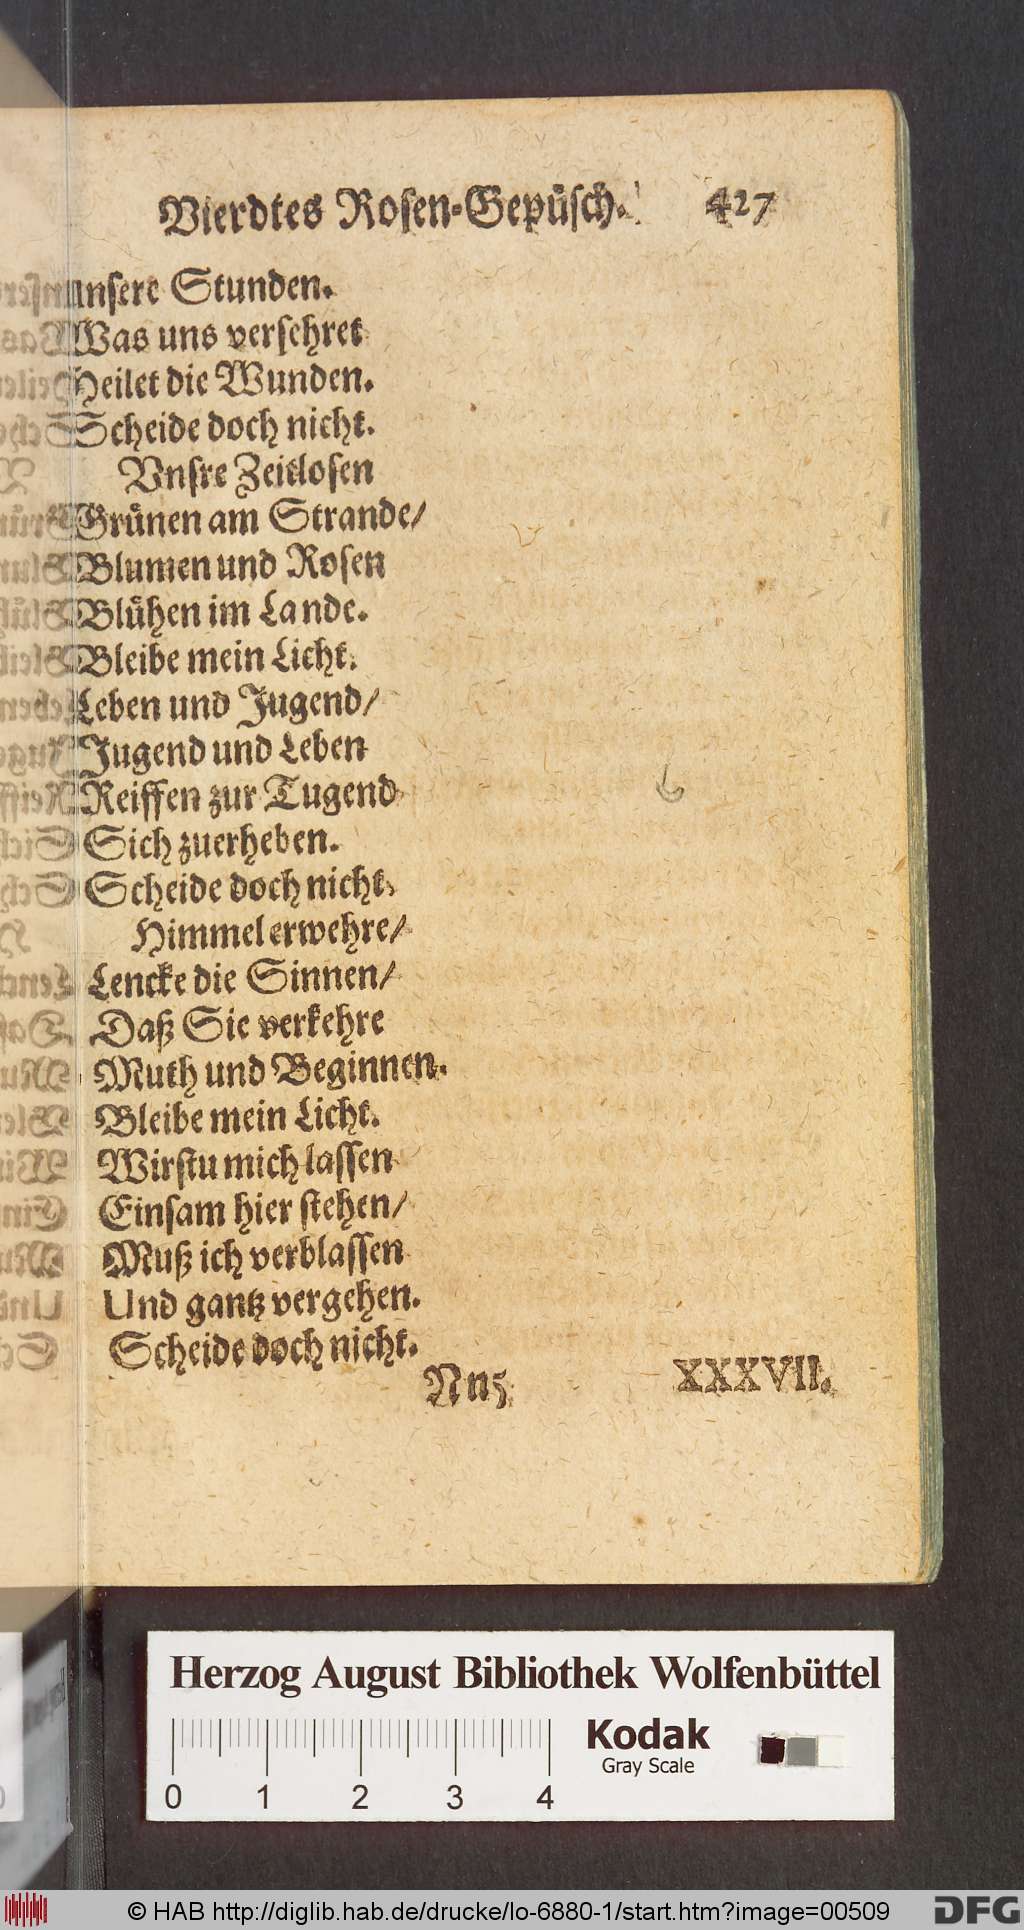 Vierdtes Rosen-Gepüsch. 427
unsere Stunden.
Was uns versehret
Heilet die Wunden.
Scheide doch nicht.
Vnsre Zeitlosen
Grünen am Strande/
Blumen und Rosen
Blühen im Lande.
Bleibe mein Licht.
Leben und Jugend/
Jugend und Leben
Reiffen zur Tugend
Sich zuerheben.
Scheide doch nicht.
Himmel erwehre/
Lencke die Sinnen/
Daß Sie verkehre
Muth und Beginnen.
Bleibe mein Licht.
Wirstu mich lassen
Einsam hier stehen/
Muß ich verblassen
Und gantz vergehen.
Scheide doch nicht.
Nn5 XXXVII.
Herzog August Bibliothek Wolfenbüttel
Kodak
Gray Scale
0 1 2 3 4
© HAB http://diglib.hab.de/drucke/lo-6880-1/start.htm?image=00509
DFG